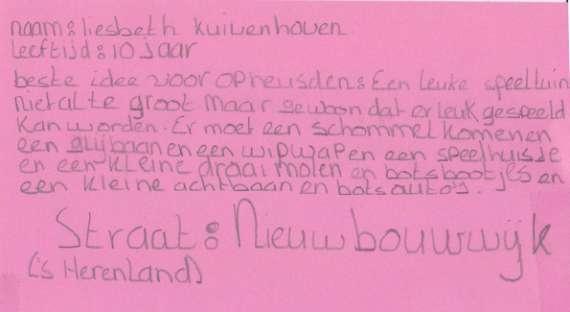 naam: liesbeth kuivenhoven
leeftijd: 10 jaar
beste idee voor opheusden: Een leuke speeltuin
niet al te groot maar gewoon dat er leuk gespeeld
kan worden. Er moet een schommel komen en
een glijbaan en een wipwap en een speelhuisje
en een kleine draaimolen en botsbootjes en
een kleine achtbaan en botsauto's.
Straat: Nieuwbouwwijk
('s Herenland)